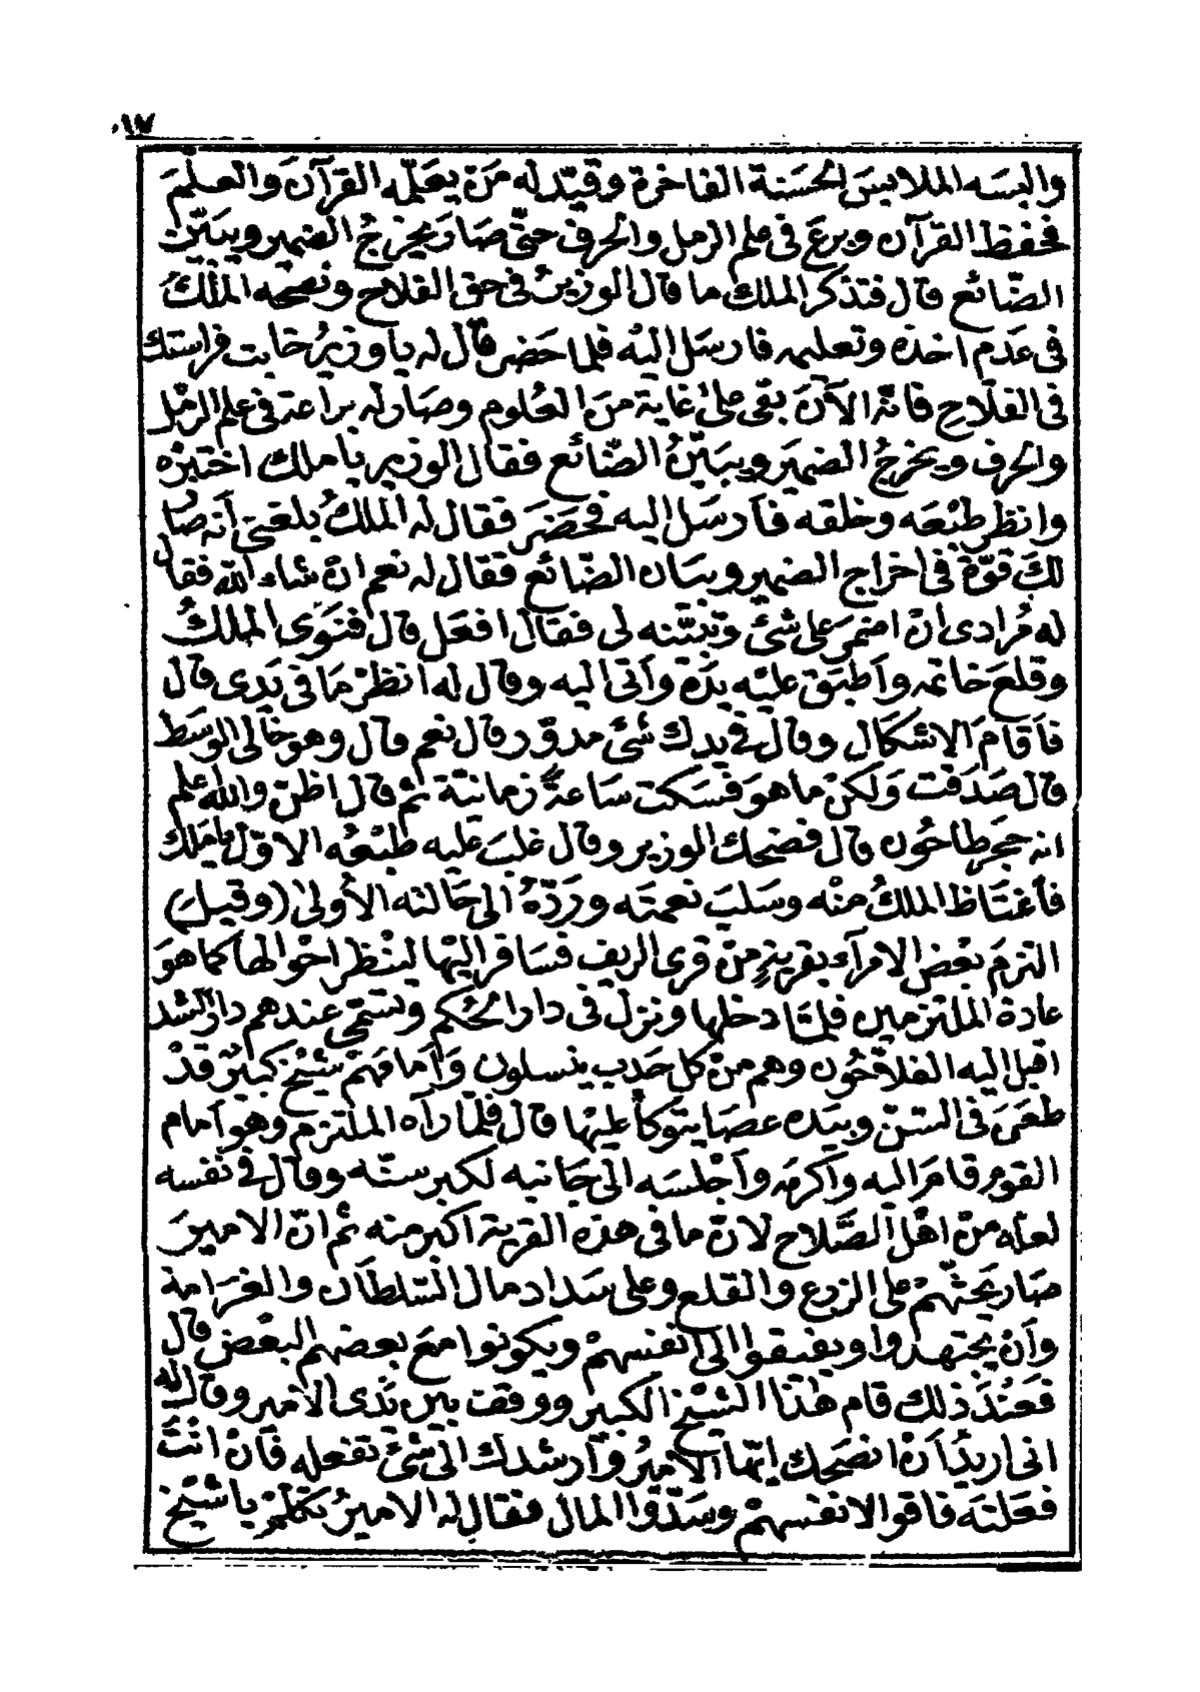 ١٧
والبسَه الملابسَ الحسَنة الفاخرة وقيّد له مَن يعَلّمه القرآن والعلمَ
فحفظ القرآن وبرعَ فى علم الرمل والحرف حتّى صَارَ يخرجُ الضمير ويبيّن
الضّائع قال فتذكر الملك ما قال الوزيرُ فى حق الفلاح ونصحه الملكُ
فى عَدم اخذه وتعليمه فارسَل اليْه فلما حَضر قال له ياوزيرُ خابت فراستك
فى الفلّاح فانّه الآنَ بقى علىٰ غاية منَ العُلوم وصَارله براعة فى علم الرمْل
والحرف ويخرجُ الضميرَ ويبيّنُ الضّائع فقال الوزير ياملك اختبرْه
وانظر طبْعَه وخلقه فأرسَل اليه فحَضَرَ فقال له الملكُ بلغنى أنه صَار
لكَ قوّة فى اخراج الضمير وبيان الضّائع فقال له نعم انْ شاء الله فقال
له مُرادى انْ اضمرَ على شئ وتبيّنه لى فقال افعَل قال فنَوَى الملكُ
وقلعَ خاتمه وأطبَق عليْه يدَه وأتى اليه وقال له انظرْ مَا فى يَدى قال
فأقامَ الاشكال وقال فى يدك شئ مدوّر قال نعم قال وهو خالى الوسَط
قال صَدَقت وَلكنْ ما هوَ فسَكت سَاعةً زمانيّة ثم قال اظنّ والله علم
انه حجر طاحُون قال فضحك الوزير وقال غلبَ عليه طبْعُه الاوّل ياملك
فأغتاظ الملكُ منْه وسَلبَ نعمتَه ورَدّهُ الى حَالته الأولىٰ (وقيل)
التزمَ بعْض الامرآء بقريةٍ منْ قرى الريف فسَافر اليْها لينْظر احْوالها كما هوَ
عَادة الملتزمين فلمّا دخلها ونزل فى دار الحُكم وتسَمّى عندهم دار الشد
اقبل اليه الفلاحُون وهم منْ كل حَدب ينسلون وَأمامَهمْ شيْخ كبيرٌ قدْ
طعَنَ فى السّنّ وبيَده عصَا يتوكأ عليْها قال فلمّا رآه الملتزم وهو أمام
القوم قامَ اليه وأكرمَه وأجْلسَه الى جَانبه لكبر سنّه وقال فى نفسه
لعله منْ اهْل الصَّلاح لانّ ما فى هذه القرية اكبر منه ثم انّ الاميرَ
صَار يَحثّهمْ على الزرع والقلع وعلى سَداد مال السّلطان والغرَامة
وأنْ يجتهدوا ويفيقوا الى انفسهمْ ويكونوا معَ بعضهم البعْض قال
فعَنْدَ ذلك قام هٰذا الشيْخ الكبير ووقف بين يَدى الامير وقال له
انى اريدُ أنْ انصَحك ايّها الاميرُ وأرشدك الى شئ تفعله فأنْ انتَ
فعَلتَه فاقوا لانفسهمْ وسَدّوا المال فقال له الاميرُ تكلمْ ياشيْخ